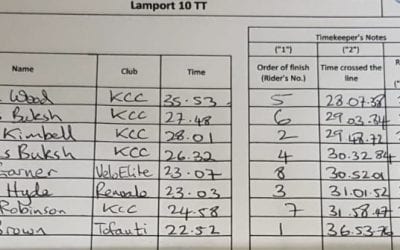 Lamport 10 TT
Timekeeper's Notes
("1") ("2")
Name Club Time Order of finish (Rider's No.) Time crossed the line R
Wood KCC 35.53 5 28.07.38
Buksh KCC 27.48 6 29.03.34
Kimbell KCC 28.01 2 29.48.72
s Buksh KCC 26.32 4 30.32.84
Garner VeloElite 23.07 8 30.52.01
Hyde 23.03 3 31.01.52
Robinson KCC 24.58 7 31.58.47
Brown 22.52 1 36.53.76